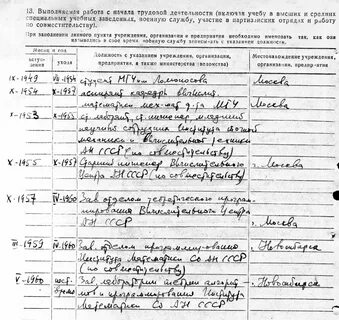 13. Выполняемая работа с начала трудовой деятельности (включая учебу в высших и средних
специальных учебных заведениях, военную службу, участие в партизанских отрядах и работу
по совместительству).
При заполнении данного пункта учреждения, организации и предприятия необходимо именовать так, как они
назывались в свое время, военную службу записывать с указанием должности.
Месяц и год
Должность с указанием учреждения, организации,
предприятия, а также министерства (ведомства)
Местонахождение учреждения,
организации, предприятия
вступления
ухода
IX-1949 VI-1954 студент МГУ им. Ломоносова Москва
X-1954 X-1957 аспирант кафедры вычислит.
математики мех-мат ф-та МГУ Москва
X-1953 X-1955 ст. лаборант, ст. инженер, младший
научный сотрудник Института точной
механики и вычислительной техники
АН СССР (по совместительству) Москва
X-1955 X-1957 Старший инженер Вычислительного
Центра АН СССР (по совместительству) г. Москва
X-1957 IV-1960 Зав. отделом теоретического програм-
мирования Вычислительного Центра
АН СССР г. Москва
III-1959 IV-1960 Зав. отделом программирования
Института Математики Со АН СССР
(по совместительству) г. Новосибирск
V-1960 наст.
время Зав. лаборатории теории алгорит-
мов и программирования Института
Математики Со АН СССР г. Новосибирск